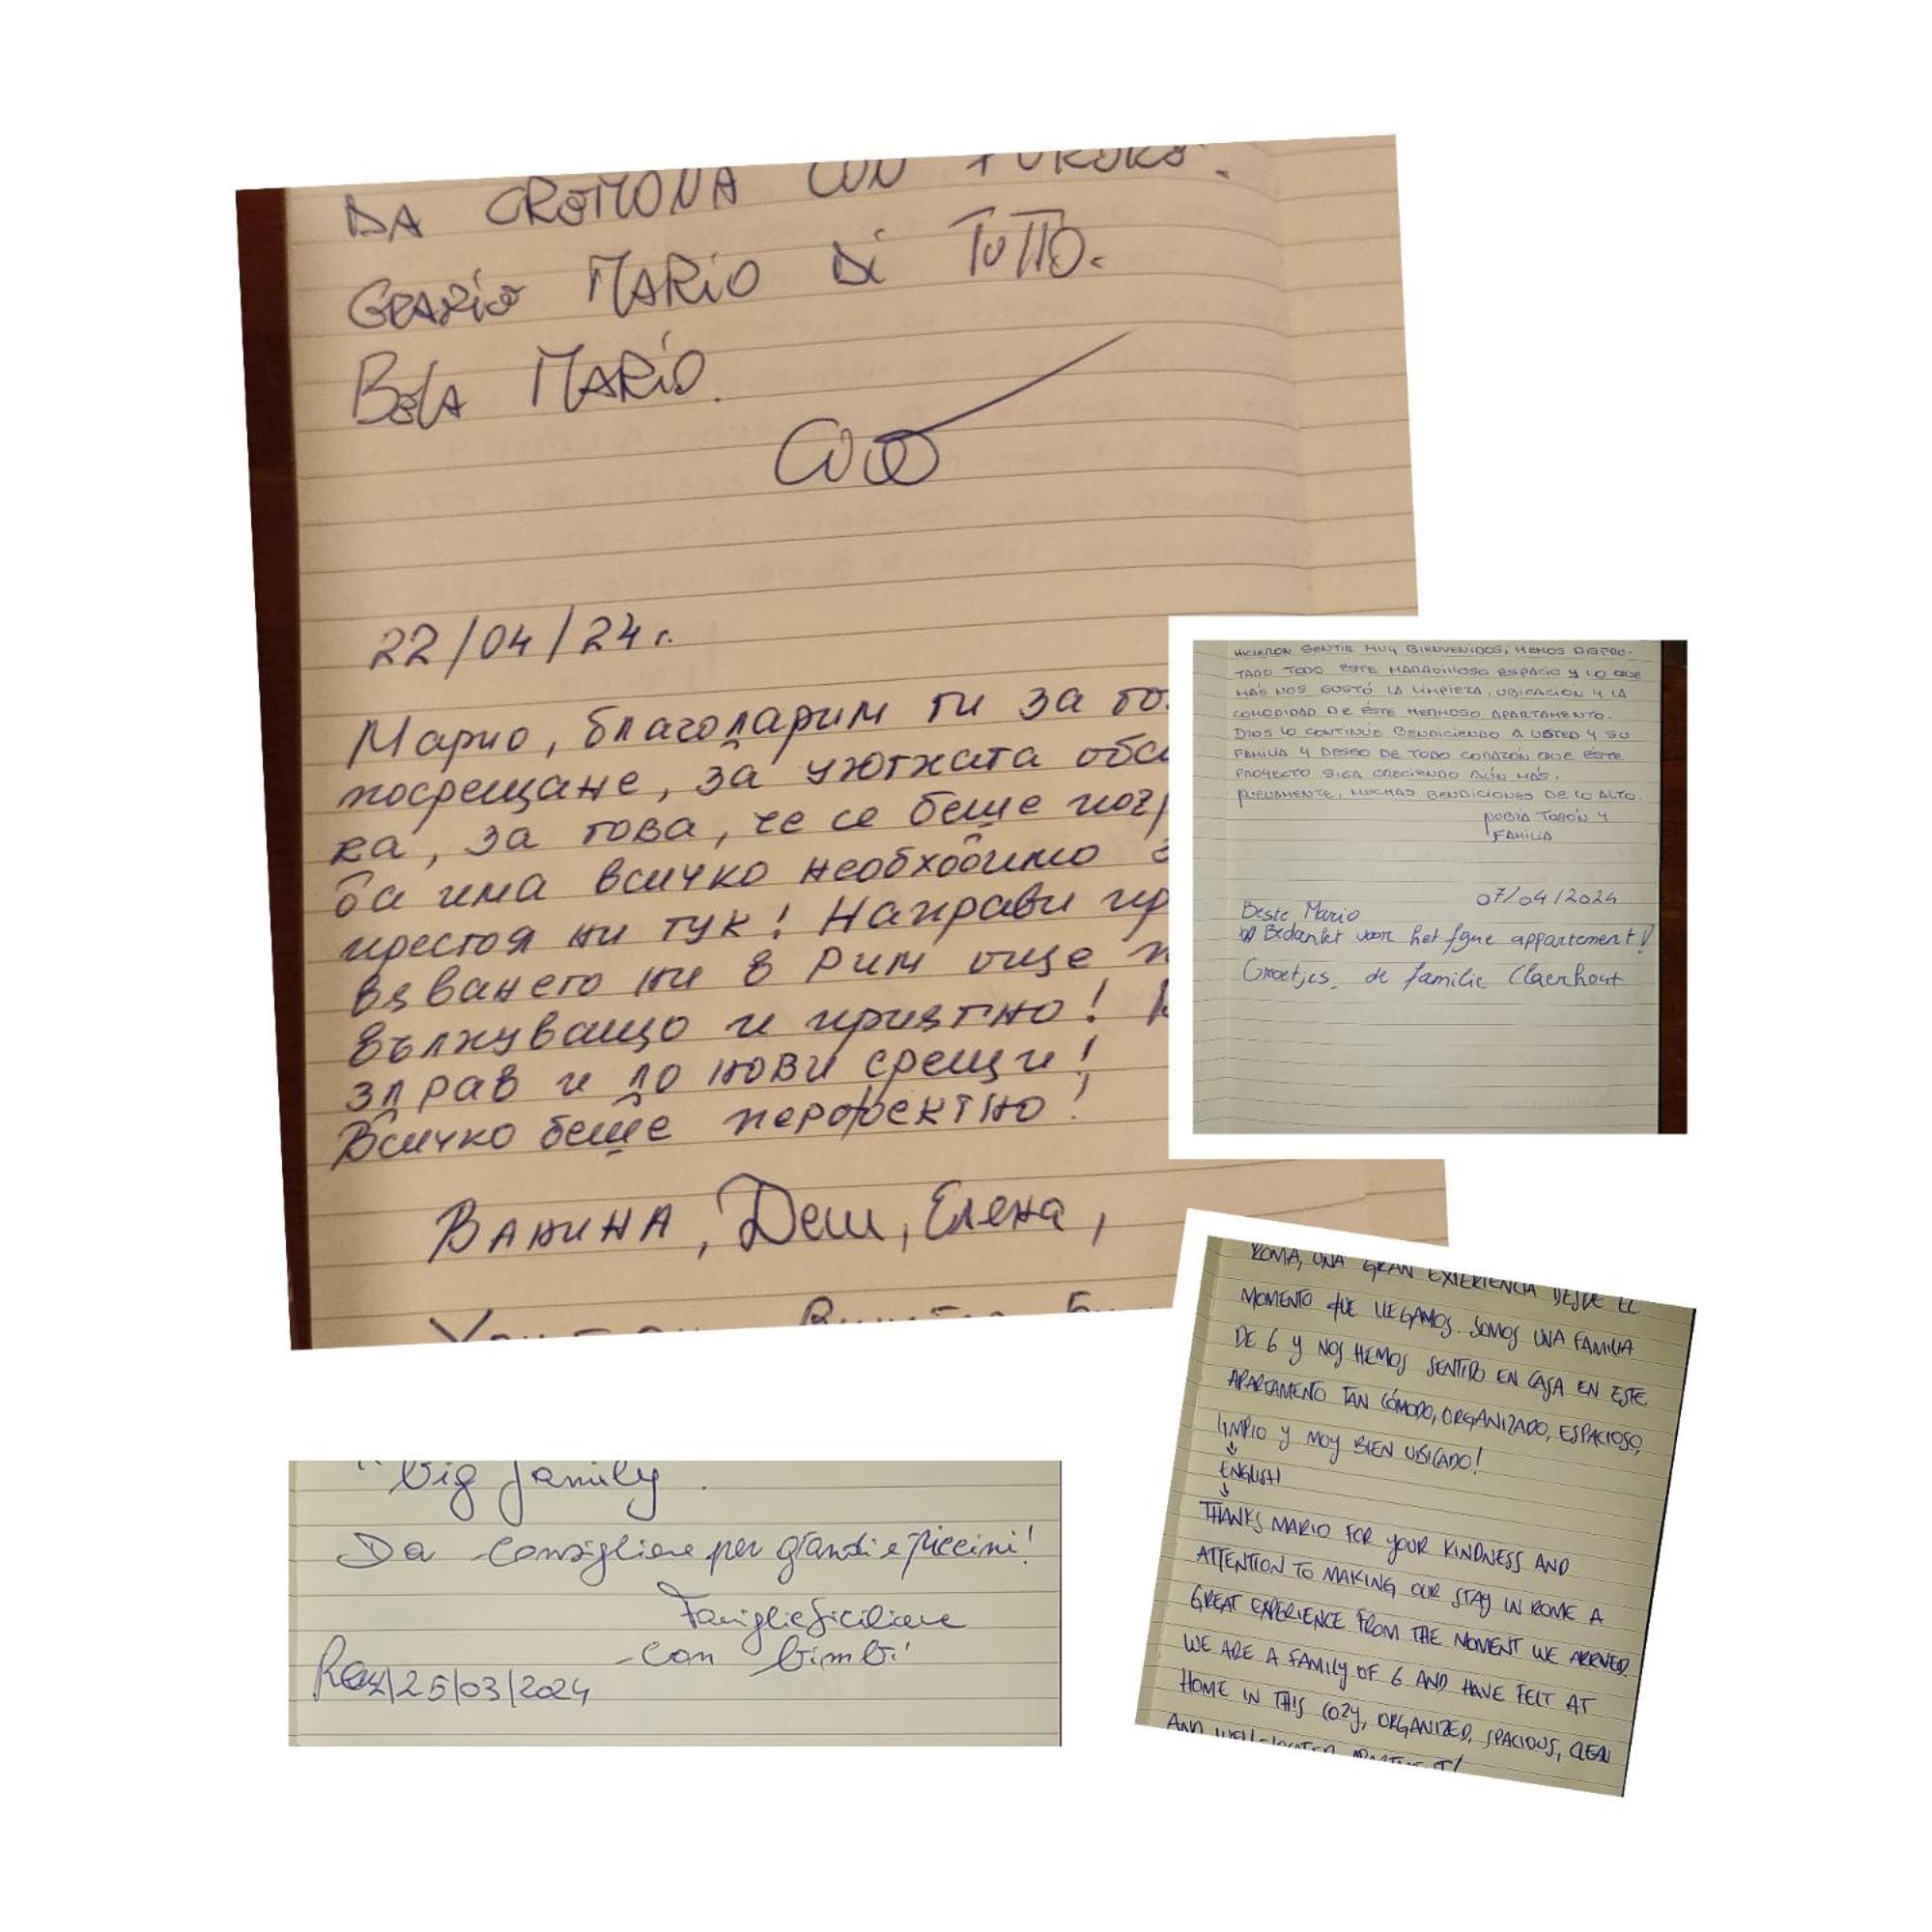 DA CREMONA CON FURORE.
GRAZIE MARIO DI TUTTO.
BELLA MARIO.
22/04/24 г.
Марио, благодарим ти за
посрещане, за уютната
ка, за това, че се беше
да има всичко необходимо
престоя ни тук! Направи
вяването ни в Рим още
вълнуващо и приятно!
здрав и до нови срещи!
Всичко беше перфектно!
ВАНИНА, Деш, Елена,
HICIERON SENTIR MUY BIENVENIDOS, HEMOS DISFRU-
TADO TODO ESTE MARAVILLOSO ESPACIO Y LO QUE
MÁS NOS GUSTÓ LA LIMPIEZA, UBICACION Y LA
COMODIDAD DE ÉSTE HERMOSO APARTAMENTO.
DIOS LO CONTINÚE BENDICIENDO A USTED Y SU
FAMILIA Y DESEO DE TODO CORAZÓN QUE ÉSTE
PROYECTO SIGA CRECIENDO AÚN MÁS.
NUEVAMENTE, MUCHAS BENDICIONES DE LO ALTO.
NUBIA TOBÓN Y
FAMILIA
07/04/2024
Beste Mario
Bedankt voor het fijne appartement!
Groetjes de familie Claerhout
ROMA, UNA GRAN EXPERIENCIA DESDE EL
MOMENTO QUE LLEGAMOS. SOMOS UNA FAMILIA
DE 6 Y NOS HEMOS SENTIDO EN CASA EN ESTE
APARTAMENTO TAN CÓMODO, ORGANIZADO, ESPACIOSO,
LIMPIO Y MUY BIEN UBICADO!
ENGLISH
THANKS MARIO FOR YOUR KINDNESS AND
ATTENTION TO MAKING OUR STAY IN ROME A
GREAT EXPERIENCE FROM THE MOMENT WE ARRIVED.
WE ARE A FAMILY OF 6 AND HAVE FELT AT
HOME IN THIS COZY, ORGANIZED, SPACIOUS, CLEAN
AND WELL-LOCATED APARTMENT!
"big family.
Da consigliare per grandi e piccini!
Famiglie siciliane
con bimbi
25/03/2024